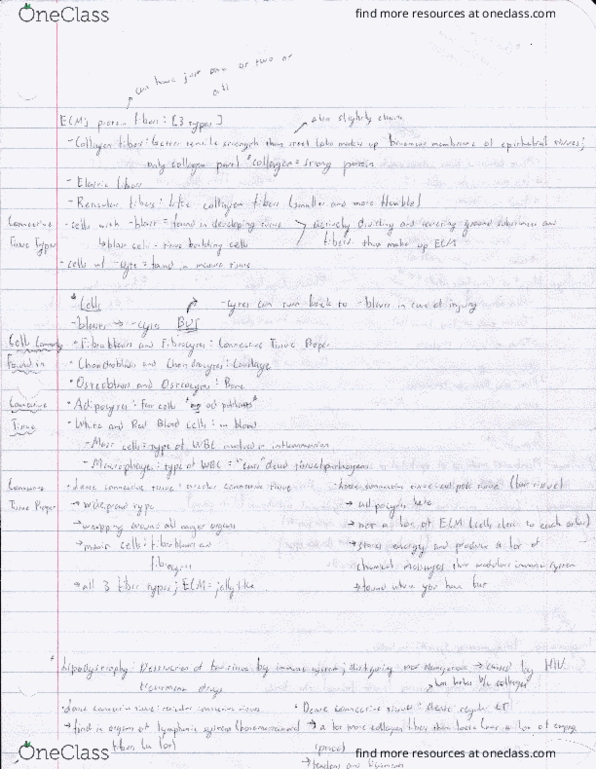 OneClass
find more resources at oneclass.com
can have just one or two or
all
ECM's protein fibers: [3 types]
even slightly
- Collagen fibers: better tensile strength than steel makes up basement membrane of epithelial tissues;
only collagen part *collagen = strong protein
- Elastic fibers
- Reticular fibers: like collagen fibers (smaller and more flexible)
Connective
Tissue Types
- cells with -blast = found in developing tissue
actively dividing and secreting ground substance and
↳ blast cells = tissue building cells
fibers that make up ECM
- cells w/ -cyte = found in mature tissue
* Cells
-cytes can turn back to -blasts in case of injury
- blasts → -cytes BUT
Cells Commonly
Found in
Connective
Tissue
• Fibroblasts and Fibrocytes: Connective Tissue Proper
• Chondroblasts and Chondrocytes: Cartilage
• Osteoblasts and Osteocytes: Bone
• Adipocytes: Fat cells *no adipoblasts*
• White and Red Blood cells: in blood
- Mast cells: type of WBC involved in inflammation
- Macrophages: type of WBC = "eats" dead tissue/pathogens
Connective
Tissue Proper
• loose connective tissue: areolar connective tissue
• loose connective tissue: adipose tissue (fat tissue)
→ widespread type
→ adipocytes here
→ wrapping around all major organs
→ not a lot of ECM (cells close to each other)
→ main cells: fibroblasts and
fibrocytes
→ stores energy and produce a lot of
chemical messages that modulate immune system
→ all 3 fiber types; ECM = jelly like
→ found where you have fat
* Lipodystrophy: Destruction of fat tissue by immune system; disfiguring not dangerous → caused by HIV
treatment drugs
• loose connective tissue: reticular connective tissue
• Dense connective tissue: dense regular CT
→ find in organs of lymphatic system (bone marrow)
→ a lot more collagen fibers than loose (not a lot of empty
fibers (a lot)
space)
→ tendons and ligaments
OneClass
find more resources at oneclass.com